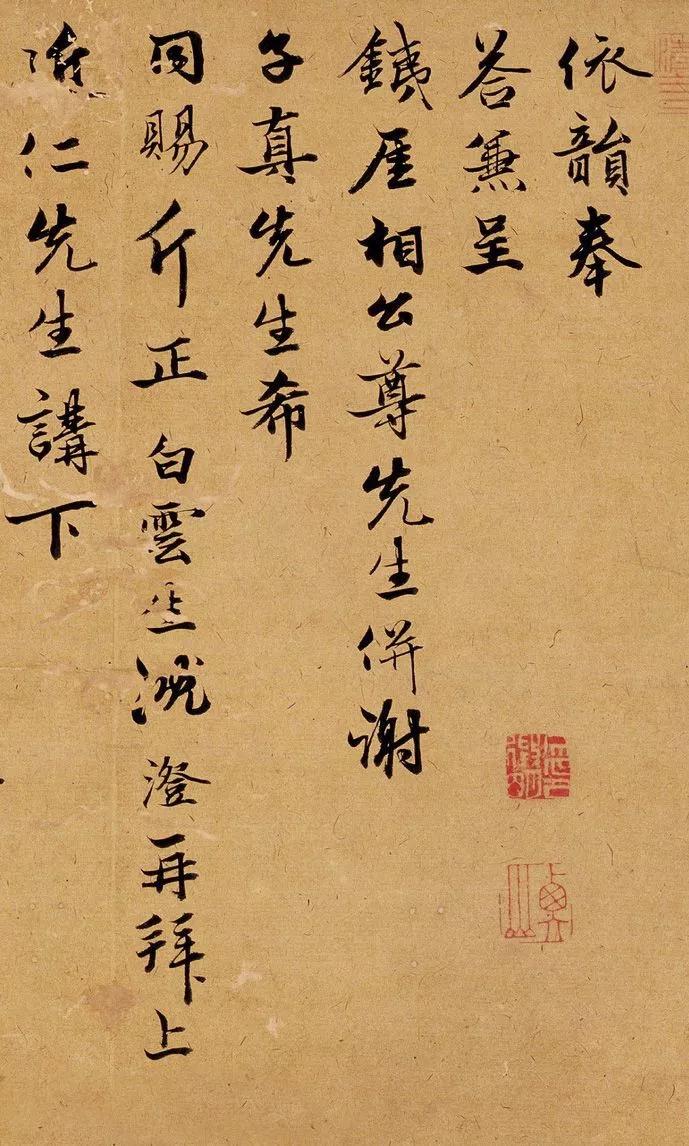 依韻奉
荅兼呈
鐵厓相公尊先生併謝
子真先生希
同賜斤正 白雲生 澄再拜上
仁先生講下